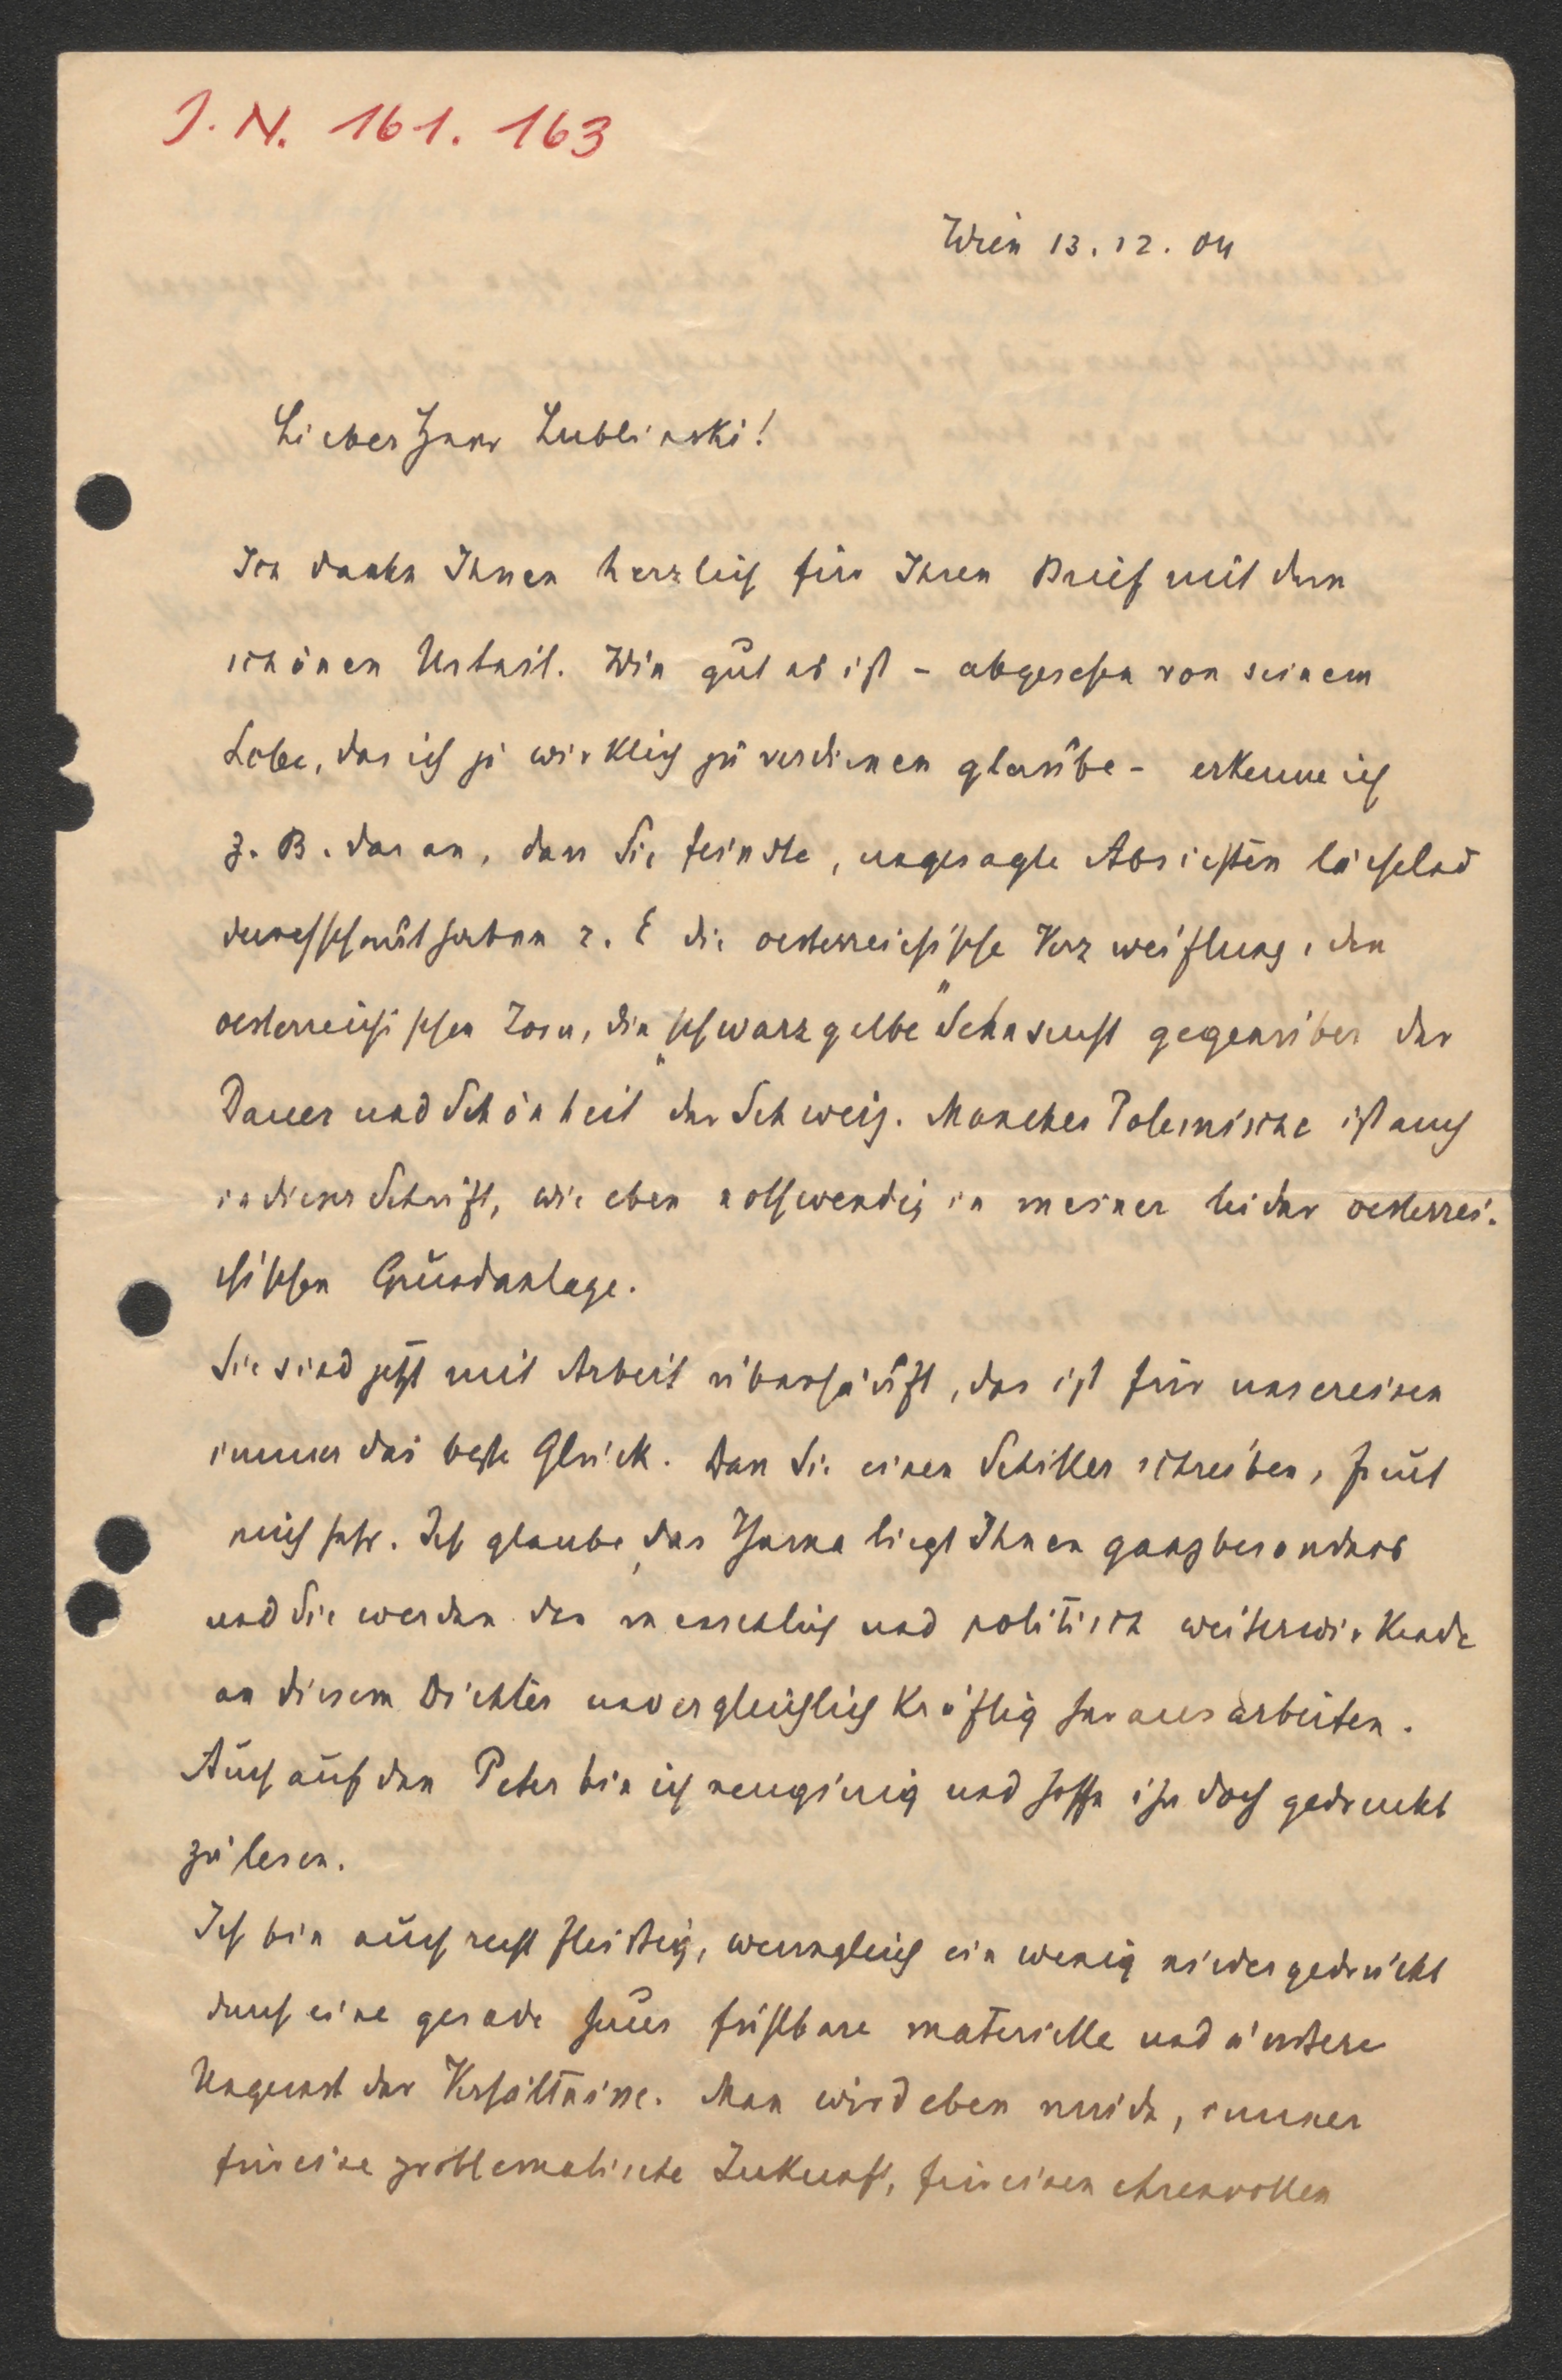 J. N. 161. 163
Wien 13. 12. 04
Lieber Herr Lublinski!
Ich danke Ihnen herzlich für Ihren Brief mit dem
schönen Urteil. Wie gut es ist – abgesehen von seinem
Lobe, das ich ja wirklich zu verdienen glaube – erkenne ich
z. B. daran, dass Sie feindte, ungesagte Absichten lächelnd
durchschaut haben z. E die oesterreichische Verzweiflung, den
oesterreichischen Zorn, die „schwarzgelbe“ Sehnsucht gegenüber der
„Dauer und Schönheit“ der Schweiz. Manches Polemische ist auch
in dieser Schrift, wie eben nothwendig in meiner leider oesterrei-
chischen Grundanlage.
Sie sind jetzt mit Arbeit überhäuft, das ist für unsereinen
immer das beste Glück. Dass Sie einen Schiller schreiben, freut
mich sehr. Ich glaube, das Thema liegt Ihnen ganz besonders
und Sie werden das menschlich und politisch weiterwirkende
an diesem Dichter unvergleichlich kräftig herausarbeiten.
Auch auf den Peter bin ich neugierig und hoffe ihn doch gedruckt
zu lesen.
Ich bin auch recht fleissig, wenngleich ein wenig niedergedrückt
durch eine gerade heuer fühlbare materielle und äussere
Ungunst der Verhältnisse. Man wird eben müde, immer
für eine problematische Zukunft, für einen ehrenvollen